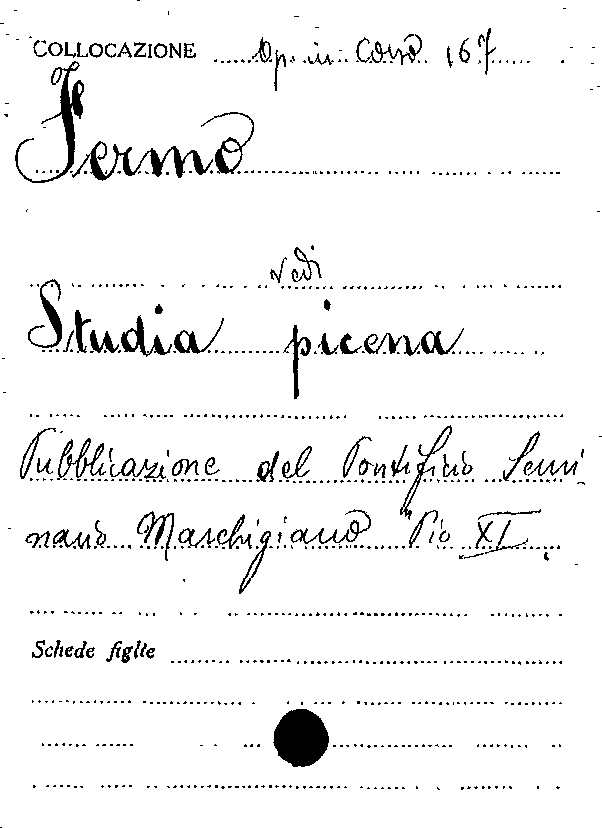 COLLOCAZIONE Op. in Corso 167
Fermo
vedi
Studia picena
Pubblicazione del Pontificio Semi-
nario Marchigiano "Pio XI.
Schede figlie